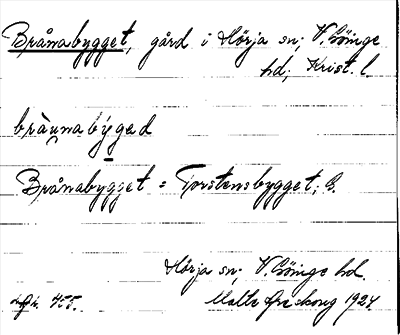 Brånabygget, gård i Hörja sn; V. Göinge
hd; Krist. l.
bràunabýged
Brånabygget = Torstensbygget; G.
Hörja sn; V. Göinge hd.
Malte 1924